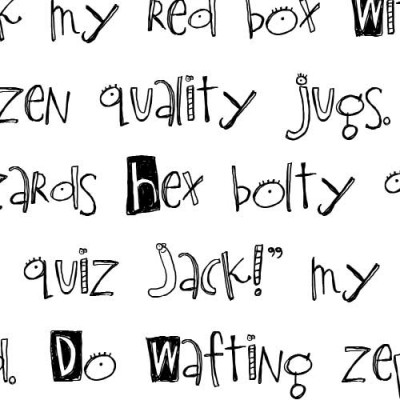 k my red box wi
zen quality jugs.
zards hex bolty
quiz Jack!” my
d. Do wafting zep